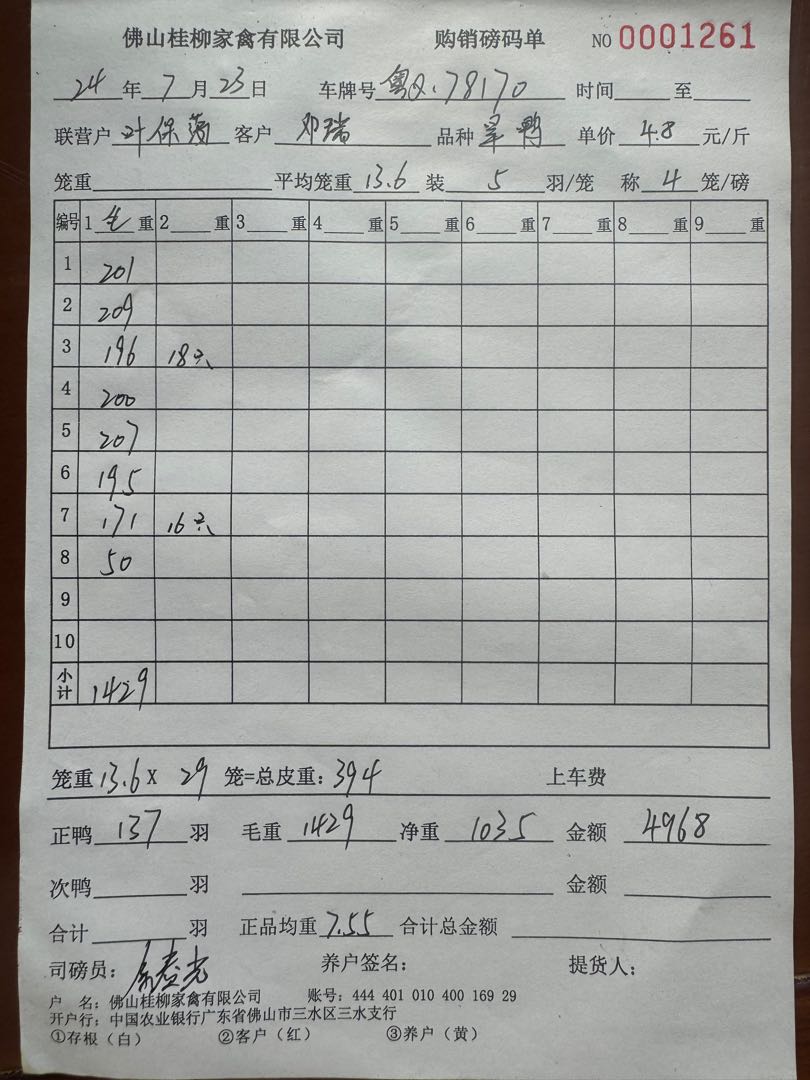 佛山桂柳家禽有限公司 购销磅码单 NO 0001261
24 年 7 月 23 日 车牌号 粤Q·78170 时间 至
联营户 叶保 客户 邓瑞 品种 旱鸭 单价 4.8 元/斤
笼重 平均笼重 13.6 装 5 羽/笼 称 4 笼/磅
编号 1 毛 重 2 重 3 重 4 重 5 重 6 重 7 重 8 重 9 重
1 201
2 209
3 196 18只
4 200
5 207
6 195
7 171 16只
8 50
9
10
小计 1429
笼重 13.6 X 29 笼=总皮重: 394 上车费
正鸭 137 羽 毛重 1429 净重 1035 金额 4968
次鸭 羽 金额
合计 羽 正品均重 7.55 合计总金额
司磅员: 养户签名: 提货人:
户 名: 佛山桂柳家禽有限公司 账号: 444 401 010 400 169 29
开户行: 中国农业银行广东省佛山市三水区三水支行
①存根(白) ②客户(红) ③养户(黄)